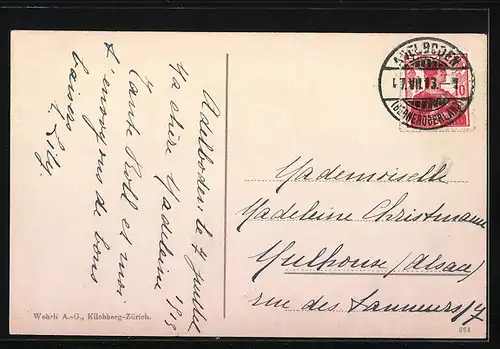 Adelboden le 7 Juillet
1913
Ma chère Madeleine
Tante Roll et moi
t'envoyons de bons
baisers
Lily.
ADELBODEN
7.VII.13.
(BERNEROBERLAND)
10
Mademoiselle
Madeleine Christmann
Mulhouse (Alsace)
rue des Tanneurs 17
Wehrli A.-G., Kilchberg-Zürich.
261